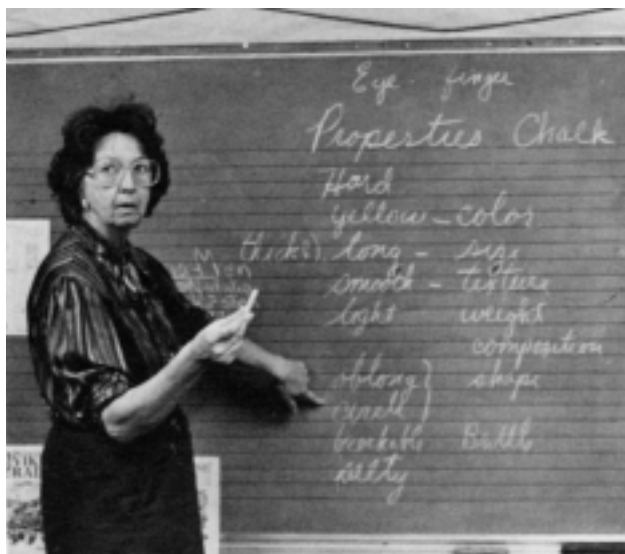 Eye finger
Properties Chalk
Hard
yellow - color
thick long - size
smooth - texture
light weight
composition
oblong } shape
circle )
breakable Brittle